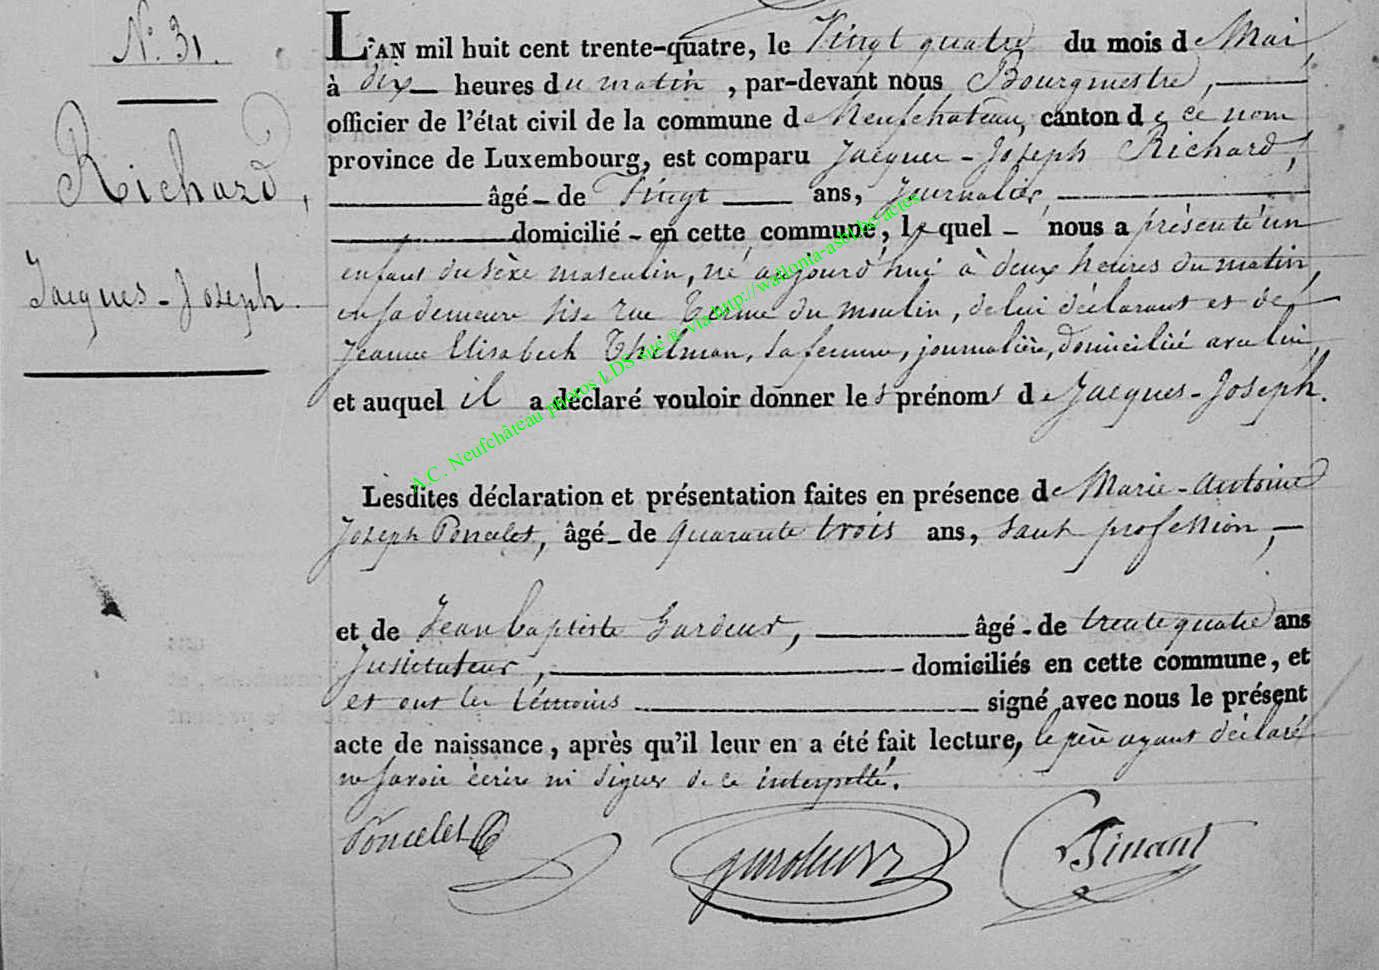 N.° 31.
Richard,
Jacques-Joseph.
L'AN mil huit cent trente-quatre, le Vingt quatre du mois de Mai,
à dix heures du matin, par-devant nous Bourgmestre,
officier de l'état civil de la commune de Neufchateau, canton de ce nom
province de Luxembourg, est comparu Jacques-Joseph Richard,
âgé de Vingt ans, journalier,
domicilié en cette commune, lequel nous a présenté un
enfant du sèxe masculin, né aujourd'hui à deux heures du matin,
en sa demeure sise rue Terme du moulin, de lui déclarant et de
Jeanne Elisabeth Thilman, sa femme, journalière, domiciliée avec lui,
et auquel il a déclaré vouloir donner les prénoms de Jacques-Joseph.
Lesdites déclaration et présentation faites en présence de Marie-Antoine
Joseph Poncelet, âgé de quarante trois ans, sans profession,
et de Jean baptiste Gardeur, âgé de trente quatre ans
Instituteur, domiciliés en cette commune, et
et ont les témoins signé avec nous le présent
acte de naissance, après qu'il leur en a été fait lecture, le père ayant déclaré
ne savoir écrire ni signer de ce interpellé.
Poncelet gardeur Binant
A.C. Neufchâteau photos LDS site ® via http://wallonia-asbl.be actes